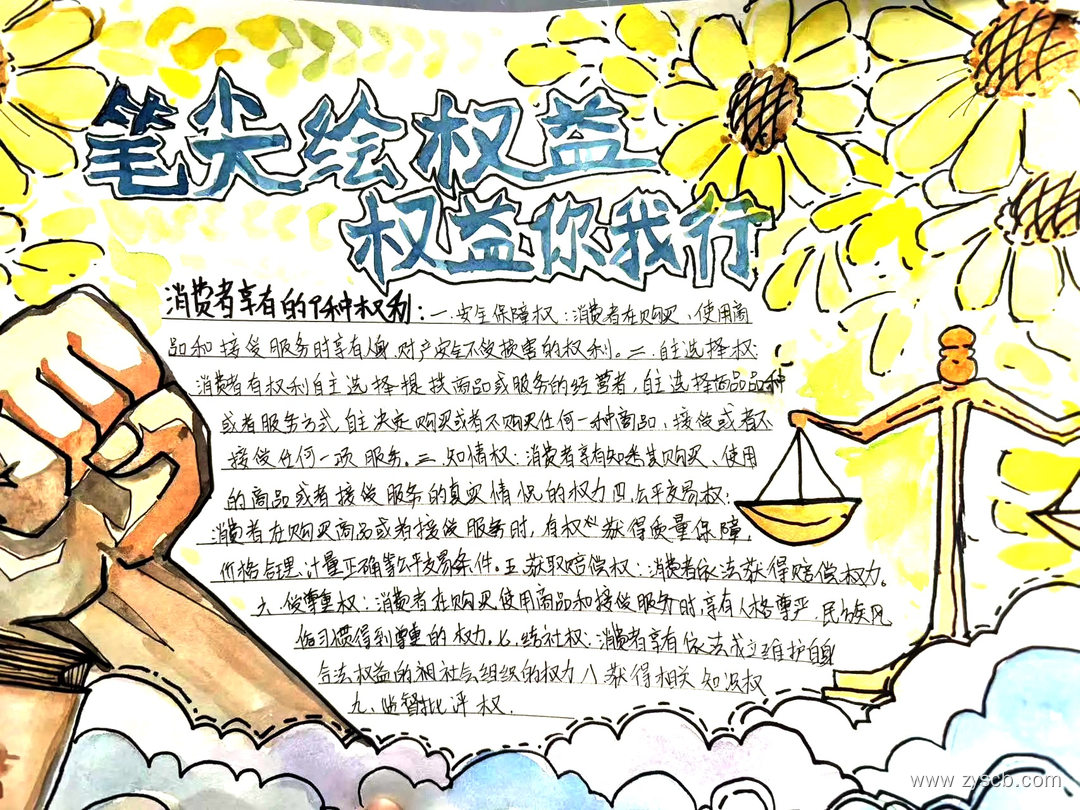 笔尖绘权益
权益你我行
消费者享有的9种权利：一.安全保障权：消费者在购买、使用商
品和接受服务时享有人身、财产安全不受损害的权利。二.自主选择权：
消费者有权利自主选择提供商品或服务的经营者，自主选择商品品种
或者服务方式，自主决定购买或者不购买任何一种商品，接受或者不
接受任何一项服务。三.知情权：消费者享有知悉其购买、使用
的商品或者接受服务的真实情况的权力四.公平交易权：
消费者在购买商品或者接受服务时，有权 获得质量保障，
价格合理，计量正确等公平交易条件。五.获取赔偿权：消费者依法获得赔偿权力。
六.受尊重权：消费者在购买、使用商品和接受服务时享有人格尊严、民族风
俗习惯得到尊重的权力.七.结社权：消费者享有依法成立维护自身
合法权益的 社会组织的权力八获得相关知识权
九、监督批评权.
www.zyscb.com